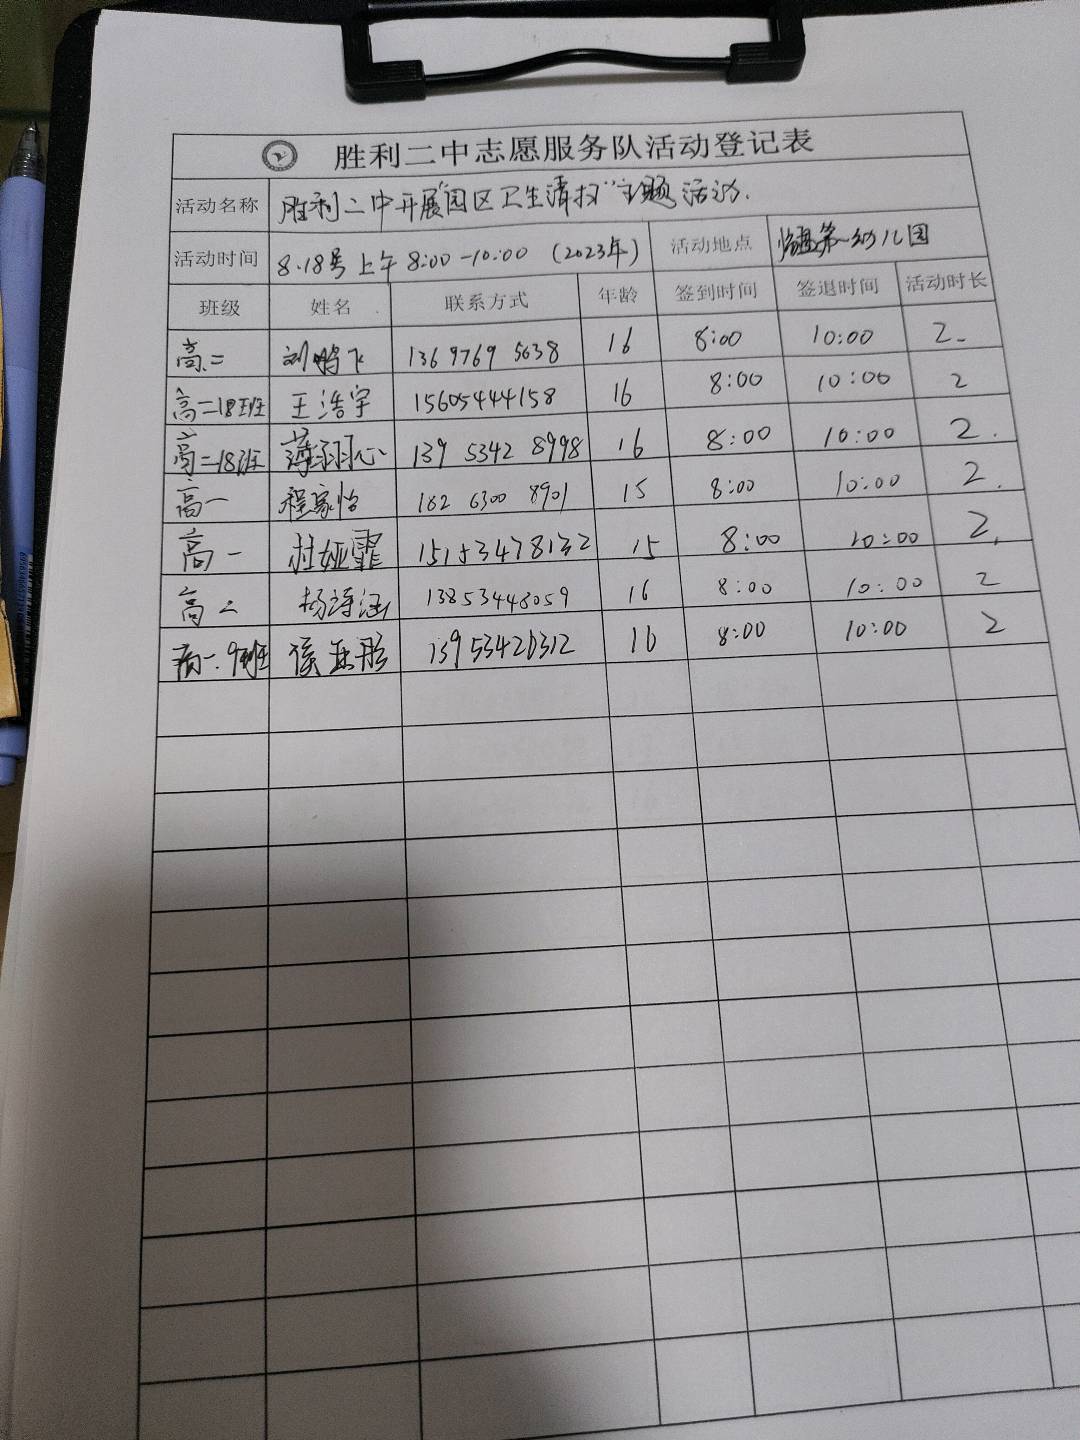 胜利二中志愿服务队活动登记表
活动名称 胜利二中开展"园区卫生清扫"主题活动.
活动时间 8.18号上午 8:00-10:00 (2023年) 活动地点 临盘第一幼儿园
班级 姓名 联系方式 年龄 签到时间 签退时间 活动时长
高二 刘鹏飞 136 9769 5638 16 8:00 10:00 2.
高二18班 王浩宇 15605444158 16 8:00 10:00 2
高二18班 薄羽心 139 5342 8998 16 8:00 10:00 2.
高一 程家怡 182 6300 8901 15 8:00 10:00 2.
高一 杜娅霏 15153478132 15 8:00 10:00 2.
高二 杨诗涵 13853448059 16 8:00 10:00 2
高一.9班 侯玉彤 13953426312 16 8:00 10:00 2